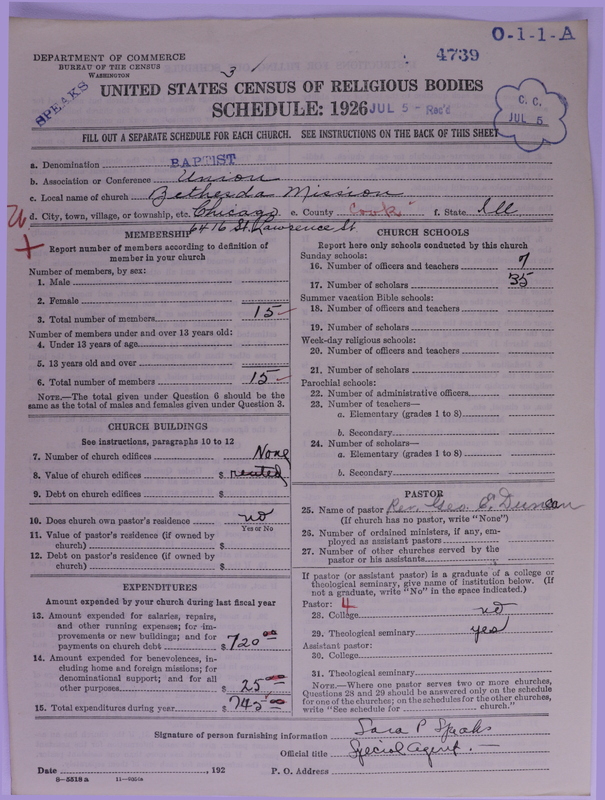 O-1-1-A
DEPARTMENT OF COMMERCE
BUREAU OF THE CENSUS
WASHINGTON
4739
3 /
SPEAKS
UNITED STATES CENSUS OF RELIGIOUS BODIES
SCHEDULE: 1926
JUL 5 - Rec'd
C. C.
JUL 5
FILL OUT A SEPARATE SCHEDULE FOR EACH CHURCH. SEE INSTRUCTIONS ON THE BACK OF THIS SHEET
a. Denomination BAPTIST
b. Association or Conference Union
c. Local name of church Bethesda Mission
d. City, town, village, or township, etc. Chicago e. County Cook f. State Ill
6416 St. Lawrence St.
MEMBERSHIP
Report number of members according to definition of member in your church
Number of members, by sex:
1. Male
2. Female
3. Total number of members 15
Number of members under and over 13 years old:
4. Under 13 years of age
5. 13 years old and over
6. Total number of members 15
NOTE.—The total given under Question 6 should be
same as the total of males and females given under Question 3.
CHURCH BUILDINGS
See instructions, paragraphs 10 to 12
7. Number of church edifices None
8. Value of church edifices $ rented
9. Debt on church edifices $
10. Does church own pastor's residence no
Yes or No
11. Value of pastor's residence (if owned by
church) $
12. Debt on pastor's residence (if owned by
church) $
EXPENDITURES
Amount expended by your church during last fiscal year
13. Amount expended for salaries, repairs,
and other running expenses; for im-
provements or new buildings; and for
payments on church debt $ 720 00
14. Amount expended for benevolences, in-
cluding home and foreign missions; for
denominational support; and for all
other purposes $ 25 00
15. Total expenditures during year $ 745 00
CHURCH SCHOOLS
Report here only schools conducted by this church
Sunday schools:
16. Number of officers and teachers 7
17. Number of scholars 35
Summer vacation Bible schools:
18. Number of officers and teachers
19. Number of scholars
Week-day religious schools:
20. Number of officers and teachers
21. Number of scholars
Parochial schools:
22. Number of administrative officers
23. Number of teachers—
a. Elementary (grades 1 to 8)
b. Secondary
24. Number of scholars—
a. Elementary (grades 1 to 8)
b. Secondary
PASTOR
25. Name of pastor Rev. Geo. E. Duncan
(If church has no pastor, write "None")
26. Number of ordained ministers, if any, em-
ployed as assistant pastors
27. Number of other churches served by the
pastor or his assistants
If pastor (or assistant pastor) is a graduate of a college or
theological seminary, give name of institution below. (If
not a graduate, write "No" in the space indicated.)
Pastor: 4
28. College no
29. Theological seminary yes
Assistant pastor:
30. College
31. Theological seminary
NOTE.—Where one pastor serves two or more churches,
Questions 28 and 29 should be answered only on the schedule
for one of the churches; on the schedules for the other churches,
write "See schedule for church."
Signature of person furnishing information Sara P Speaks
Official title Special Agent.
Date , 192 P. O. Address
8—5518a 11—9500a